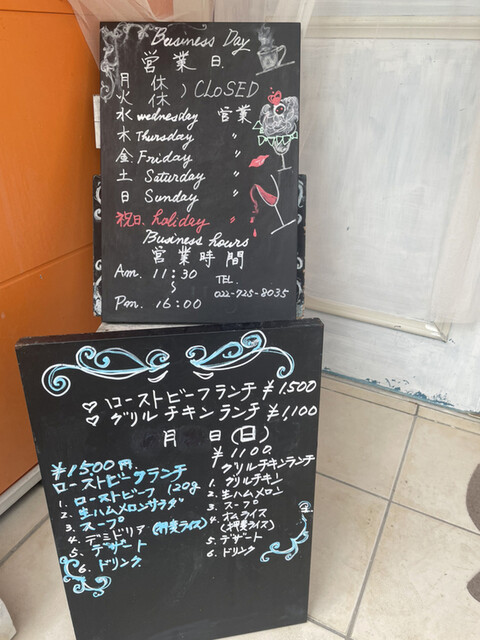 Business Day
営業日
月 休
火 休 ) CLOSED
水 wednesday 営業
木 Thursday 〃
金 Friday 〃
土 Saturday 〃
日 Sunday 〃
祝日 holiday 〃
Business hours
営業時間
Am. 11:30
〜
Pm. 16:00
TEL.
022-725-8035
♡ ローストビーフランチ ¥1,500
♡ グリルチキンランチ ¥1,100
月 日(日)
¥1500円
ローストビーフランチ
1. ローストビーフ 120g
2. 生ハムメロンサラダ
3. スープ
4. デミドリア
5. デザート
6. ドリンク
¥1100
グリルチキンランチ
1. グリルチキン
2. 生ハムメロン
3. スープ
4. オムライス
5. デザート
6. ドリンク